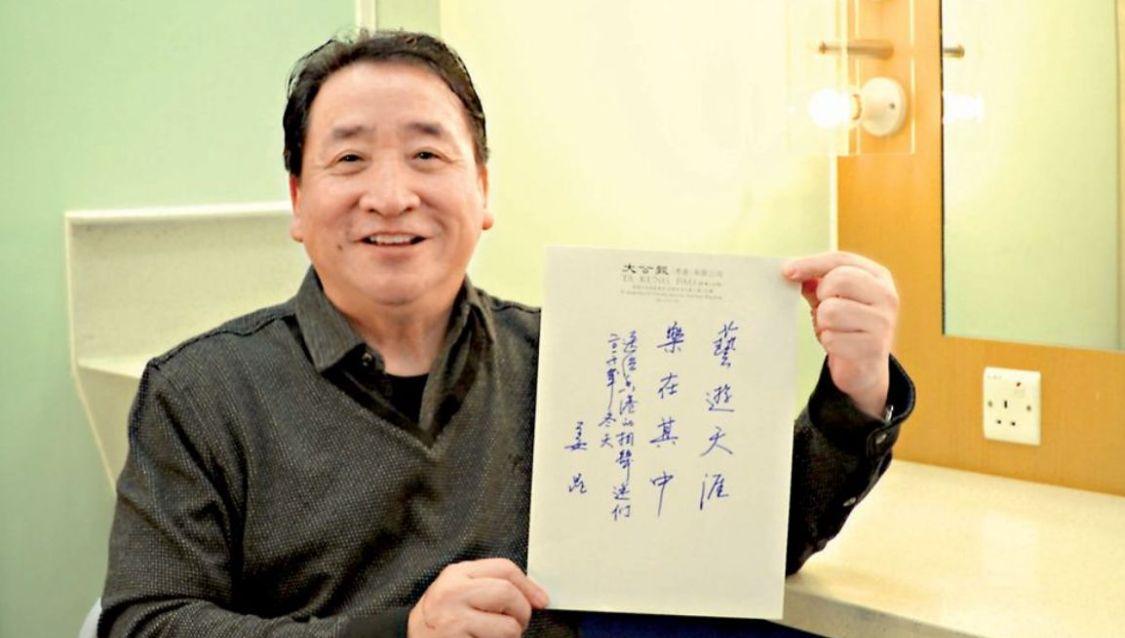 大公報(香港)有限公司
TA KUNG PAO
藝遊天涯
樂在其中
送给香港的相聲迷们
二〇一〇年冬天
姜昆